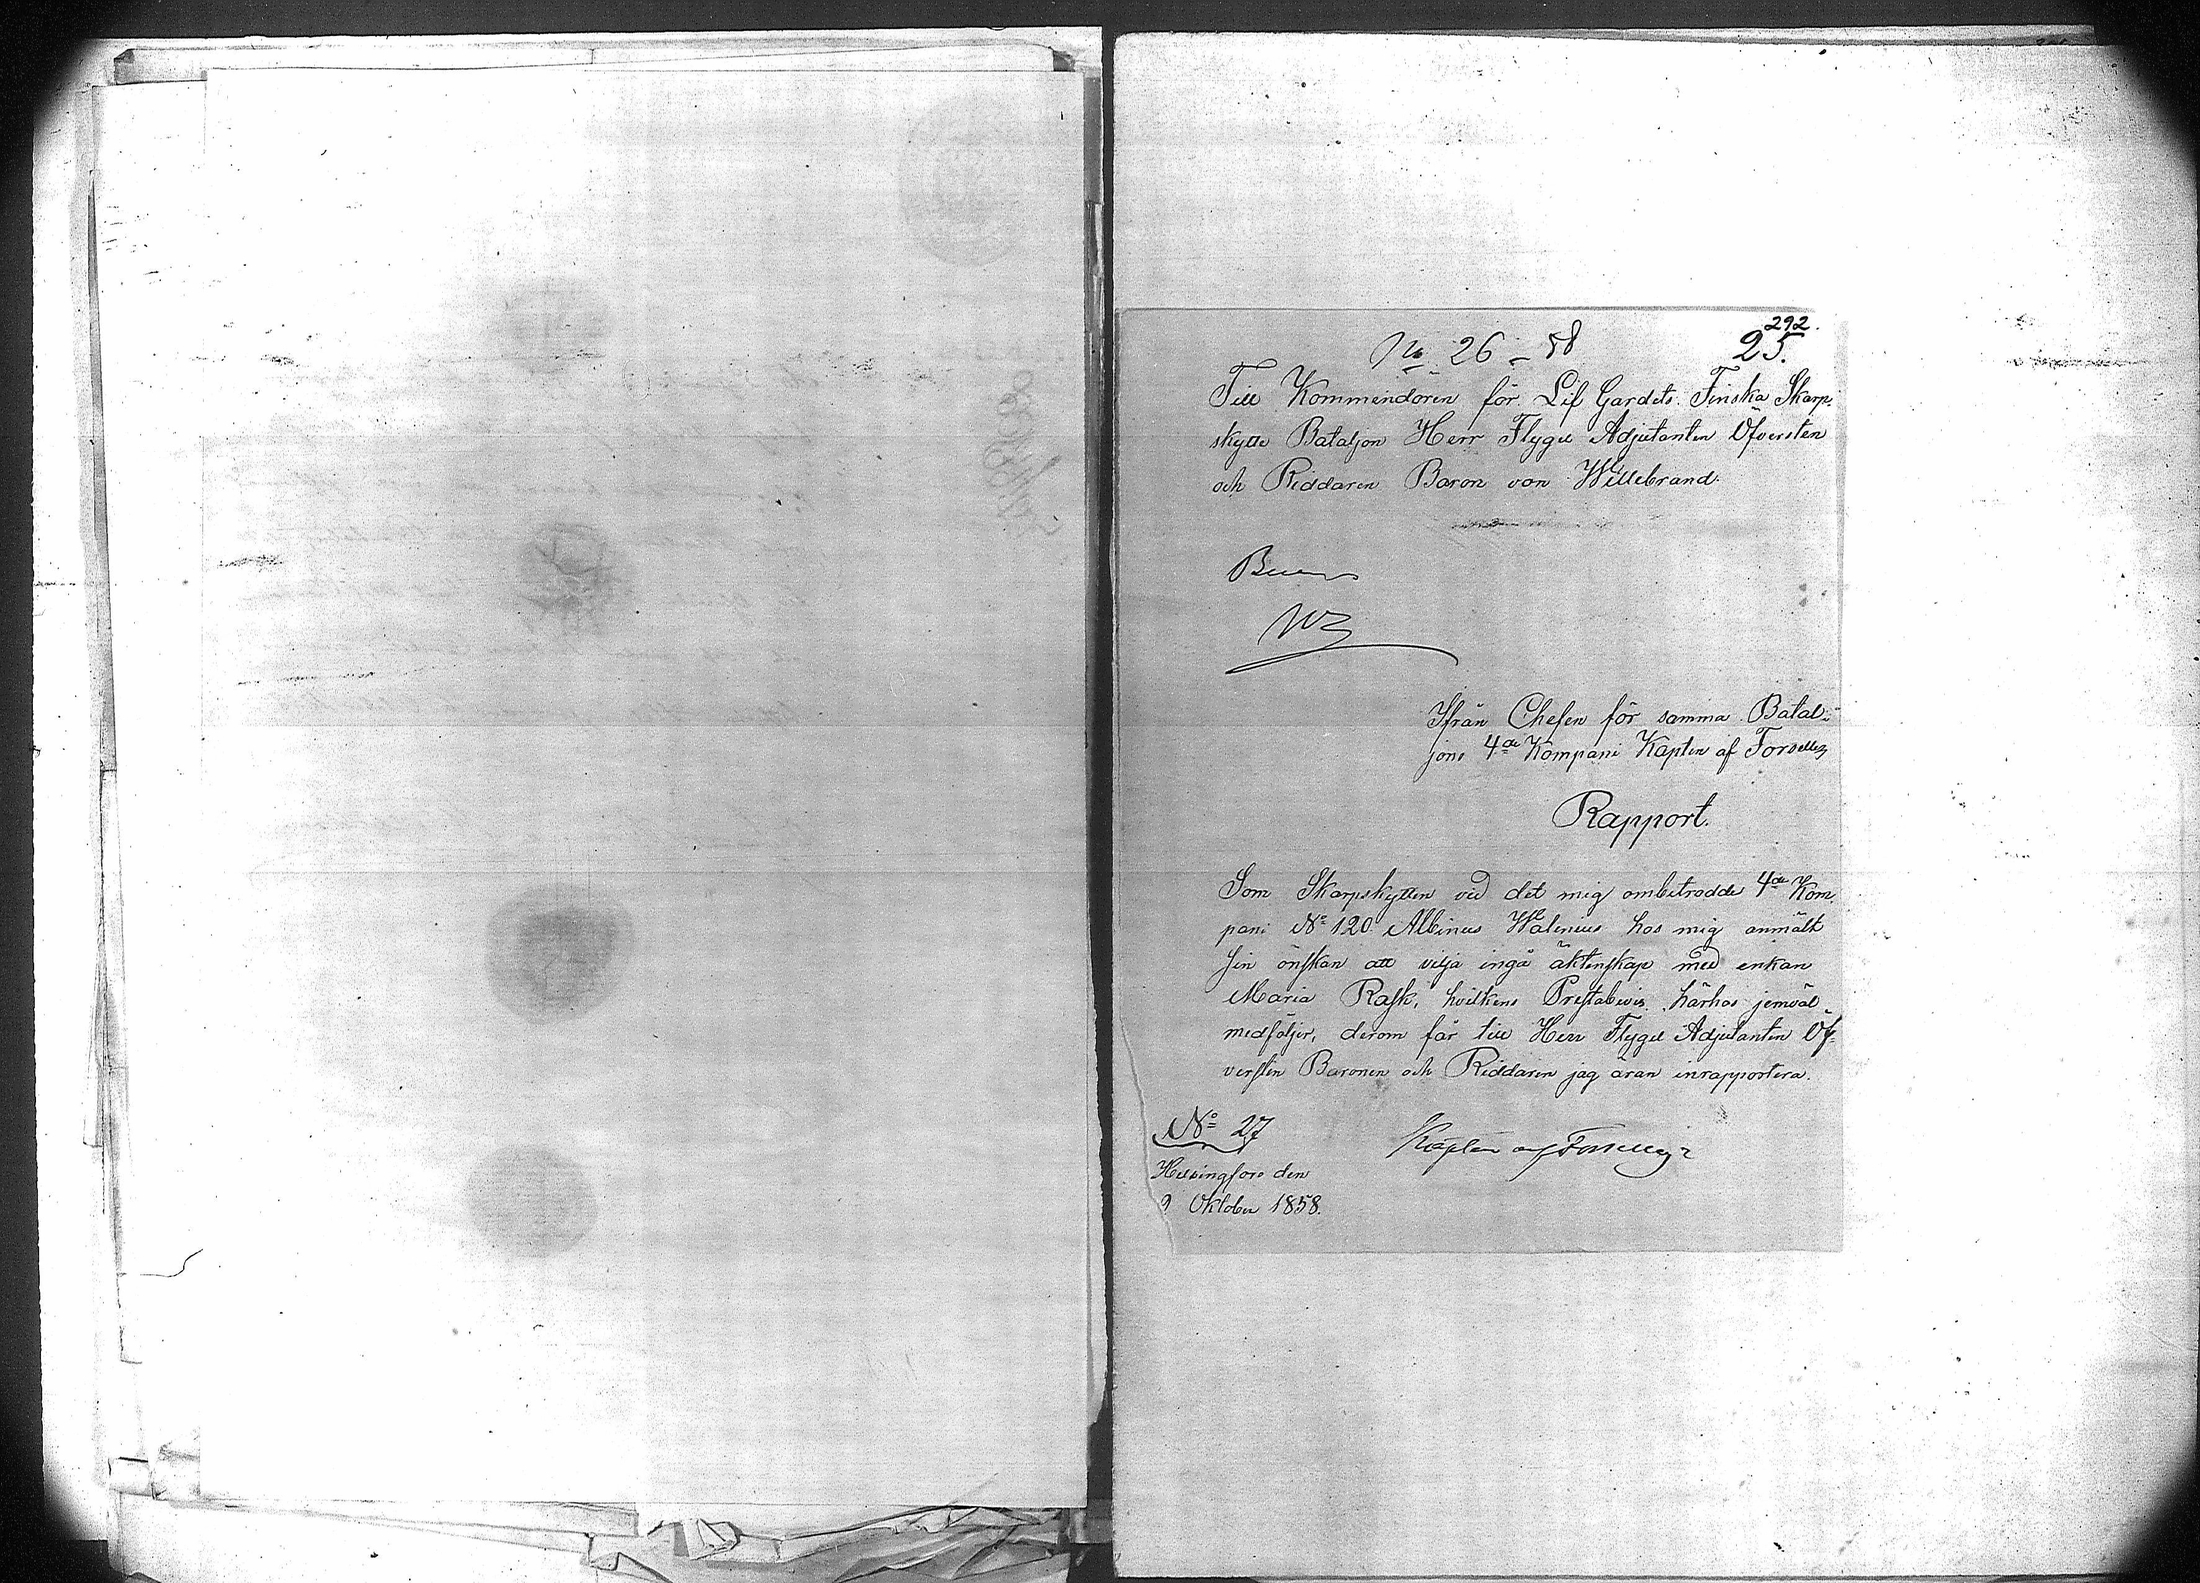 292.
No 26 - 58
25.
Till Kommendören för Lif Gardets Finska Skarp-
skytte Bataljon Herr Flygel Adjutanten Öfversten
och Riddaren Baron von Willebrand.
WB
Ifrån Chefen för samma Batal-
jons 4de Kompani Kapten af Forselles
Rapport.
Som Skarpskytten vid det mig ombetrodde 4de Kom-
pani No 120 Albinus Walenius hos mig anmält
sin önskan att vilja ingå äktenskap med enkan
Maria Rask, hvilkens Prestabevis härhos jemväl
medföljer, derom får till Herr Flygel Adjutanten Öf-
versten Baronen och Riddaren jag äran inrapportera.
No 27
Kapten af Forselles
Helsingfors den
Oktober 1858.